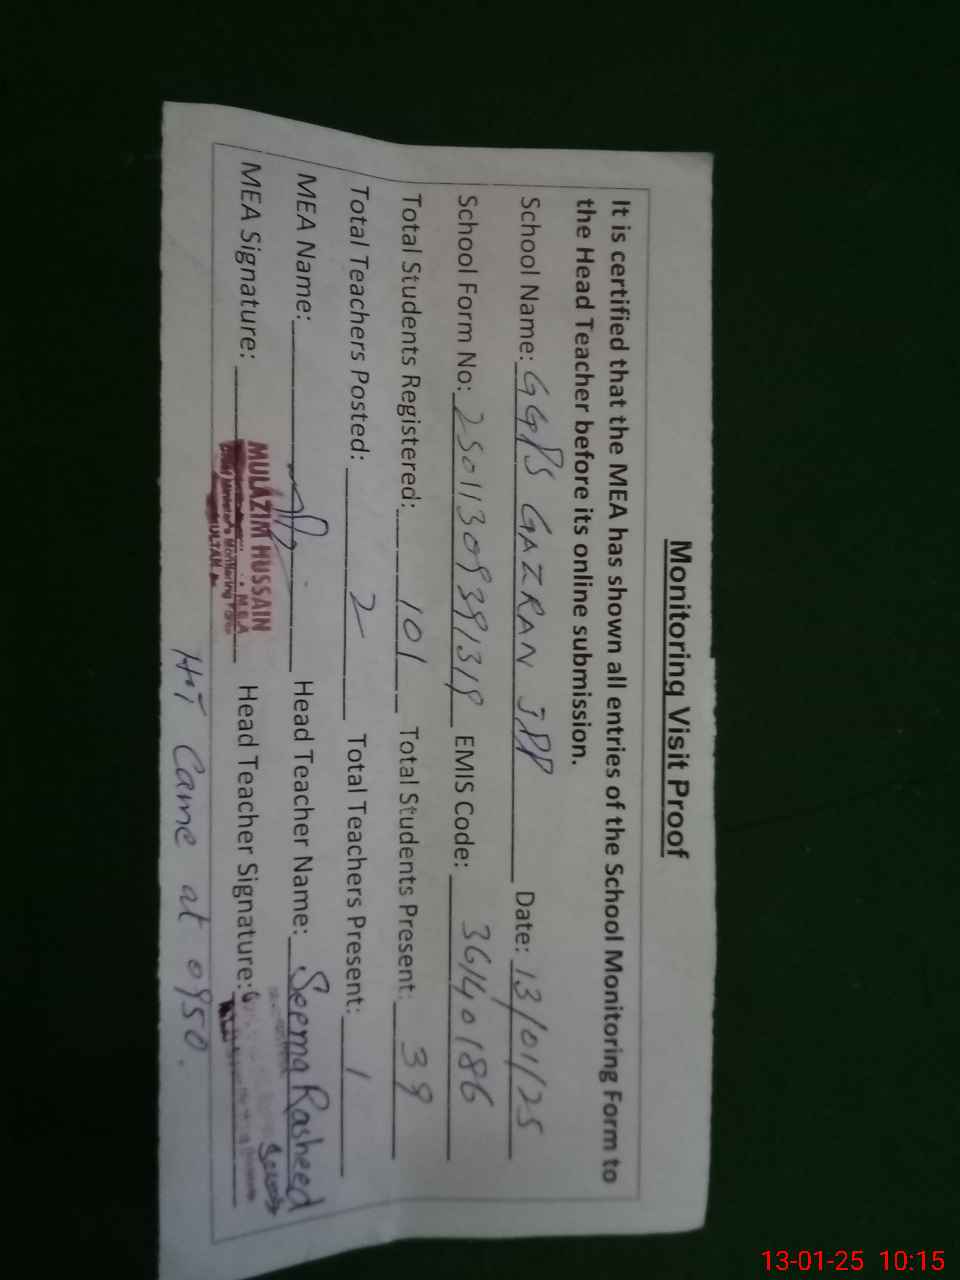 Monitoring Visit Proof
It is certified that the MEA has shown all entries of the School Monitoring Form to
the Head Teacher before its online submission.
School Name: GGPS GAZRAN JPP Date: 13/01/25
School Form No: EMIS Code: 36140186
Total Students Registered: 101 Total Students Present: 39
Total Teachers Posted: 2 Total Teachers Present: 1
MEA Name: Head Teacher Name: Seema Rasheed
MEA Signature: MULAZIM HUSSAIN Head Teacher Signature:
M.E.A
Chief Minister's Monitoring Force
MULTAN
HT Came at 0950.
13-01-25 10:15